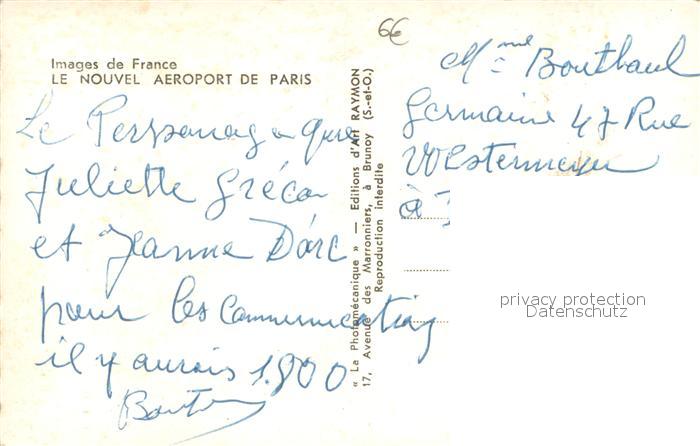 Images de France
LE NOUVEL AEROPORT DE PARIS
Le Personnage que
Juliette Gréco
et Jeanne D'arc
pour les Communications
il y aurais 1.800
« La Photomécanique » — Editions d'Art RAYMON
17, Avenue des Marronniers, à Brunoy (S.-et-O.)
Reproduction interdite
6€
Mme Bouthaul
Germaine 47 Rue
à
privacy protection
Datenschutz